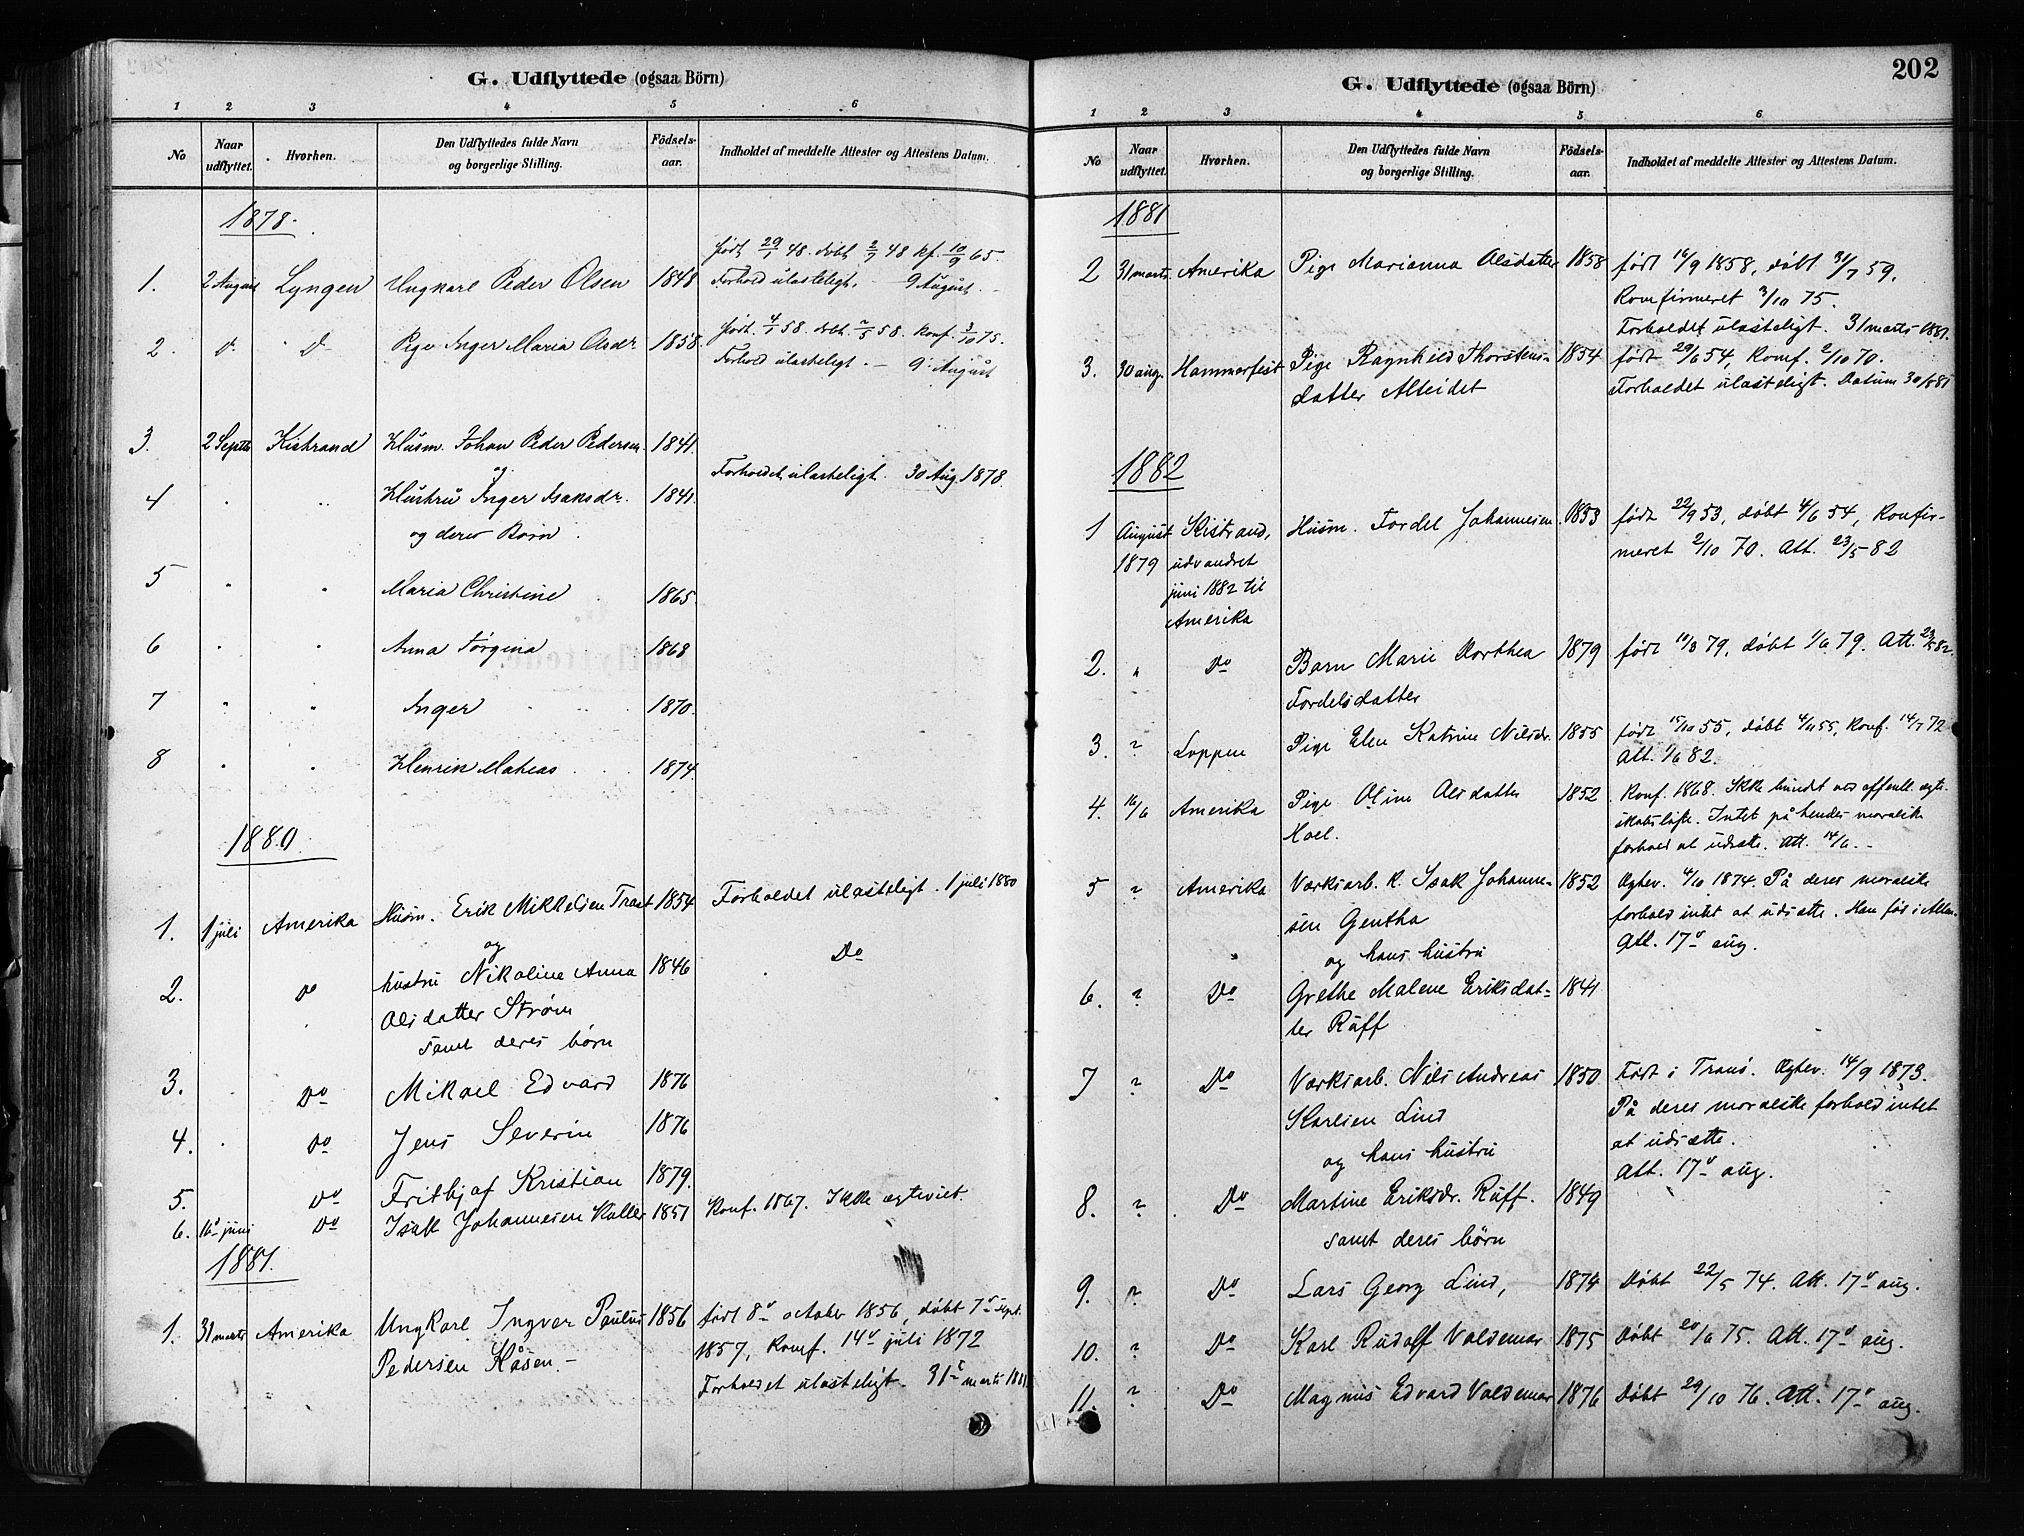 G. Udflyttede (ogsaa Börn)
1 2 3 4 5 6
No Naar udflyttet. Hvorhen. Den Udflyttedes fulde Navn og borgerlige Stilling. Födsels-aar. Indholdet af meddelte Attester og Attestens Datum.
1878.
født 29/1 48. døbt 2/7 48 kf. 10/9 65.
1. 2 August Lyngen Ungkarl Peder Olsen 1848 Forhold ulasteligt. - 9 August -
født 4/1 58. døbt 2/5 58. konf. 3/10 75.
2. D. D Pige Inger Maria Olsdr. 1858 Forhold ulasteligt. - 9 August
3. 2 Septb Kistrand Husm. Johan Peder Pedersen 1841.
og Forholdet ulasteligt. 30 Aug 1878.
4 " " Hustru Inger Isaksdr. 1841.
og deres Børn.
5 " " Maria Christine 1865
6 " " Anna Jørgina 1868
7 " " Inger 1870.
8 " " Henrik Mathias 1874.
1880.
1. 1 juli Amerika Husm. Erik Mikkelsen Trast 1854 Forholdet ulasteligt. 1 juli 1880
og
2. Do hustru Nikoline Anna 1846 Do
Olsdatter Strøm
samt deres børn
3. Do Mikael Edvard 1876
4. Do Jens Severin 1876
5. Do Fritbjof Kristian 1879.
6. 16 juni Do Isak Johannesen Kaller 1851 Konf. 1867. Ikke ægteviet.
1881.
1. 31 marts Amerika Ungkarl Ingvar Paulus 1856 født 8de october 1856, døbt 7de sept.
Pedersen Kåsen. - 1857, Konf. 14de juli 1872
Forholdet ulasteligt. 31te marts 1881
G. Udflyttede (ogsaa Börn)
202
1 2 3 4 5 6
No Naar udflyttet. Hvorhen. Den Udflyttedes fulde Navn og borgerlige Stilling. Födsels-aar. Indholdet af meddelte Attester og Attestens Datum.
1881
2 31 marts Amerika Pige Marianna Olsdatter 1858 født 14/9 1858, døbt 31/7 59,
Konfirmeret 3/10 75.
Forholdet ulasteligt. 31 marts 1881.
3. 30 aug. Hammerfest Pige Ragnhild Thorstens- 1854 født 29/6 54, Konf. 2/10 70.
datter Alteidet Forholdet ulasteligt. Datum 30/8 81
1882
1 August Kistrand, Husm. Fordel Johannesen 1853 født 22/9 53, døbt 4/6 54, Konfir-
1879 udvandret meret 2/10 70. Att. 23/5 82
juni 1882 til
Amerika
2. " Do Barn Marie Dorthea 1879 født 10/3 79, døbt 1/6 79. Att. 23/5 82.
Fordelsdatter
3. ? Loppen Pige Elen Katrine Nilsdr. 1855 født 15/10 55, døbt 4/11 55, Konf. 14/7 72
Att. 1/6 82.
4. 16/6 Amerika Pige Oline Olsdatter 1852 Konf. 1868. Ikke bundet ved offentl. ægte-
Hoel. skabsløfte. Intet på hendes moralske
forhold at udsætte. Att. 14/6. -
5 ? Amerika Værksarb. K. Isak Johanne- 1852 Ægtev. 4/10 1874. På deres moralske
sen Gentha forhold intet at udsætte. Han fød i Alten.
" og hans hustru Att. 17de aug.
6. ? Do Grethe Malene Eriksdat- 1841
ter Ruff
7 ? Do Værksarb. Nils Andreas 1850 Født i Tranø. Ægtev. 14/9 1873.
Karlsen Lind På deres moralske forhold intet
og hans hustru at udsætte.
Att. 17de aug.
8. ? Do Martine Eriksdr. Ruff. 1849
samt deres børn
9. ? Do Lars Georg Lind, 1874 Døbt 22/5 74. Att. 17de aug.
10. ? Do Karl Rudolf Valdemar 1875 Døbt 20/6 75. Att. 17de aug.
11. ? Do Magnus Edvard Valdemar 1876 Døbt 29/10 76. Att. 17de aug.